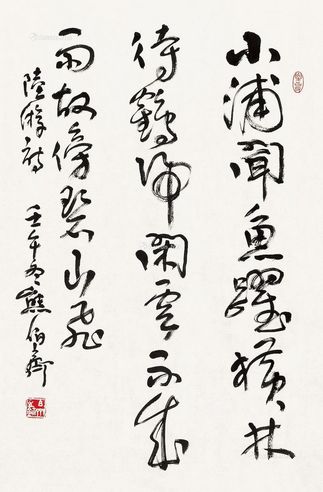 小浦闻魚躍橫林
待鶴歸閑雲不成
雨故傍碧山飛
陸游詩 壬午冬 熊伯齊